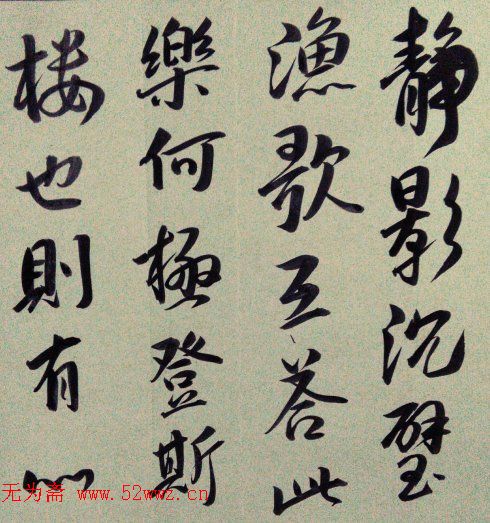 静影沉璧
漁歌互答此
樂何極登斯
楼也則有心
无为斋 www.52wwz.cn